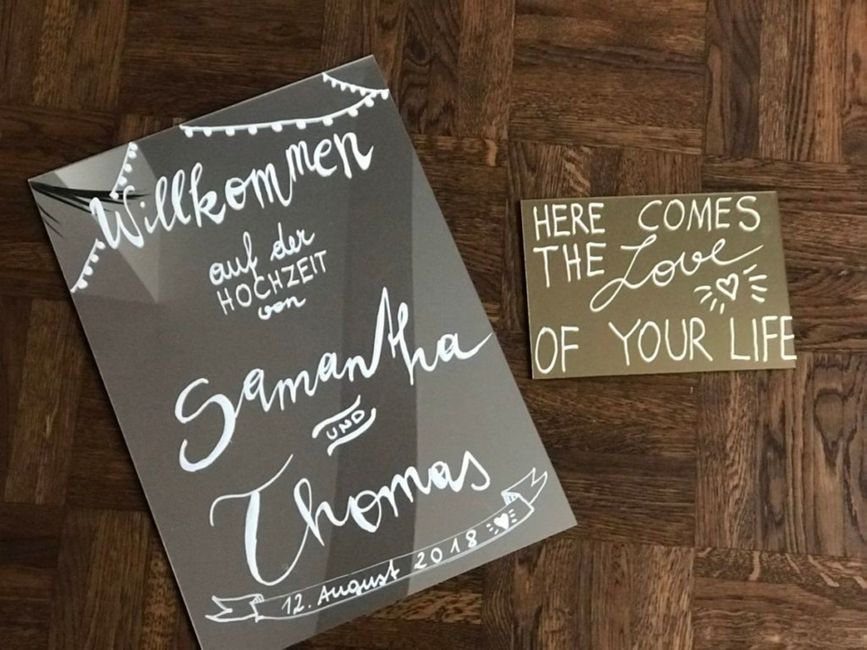 Willkommen
auf der
HOCHZEIT
von
Samantha
UND
Thomas
12. August 2018
HERE COMES
THE Love
OF YOUR LIFE